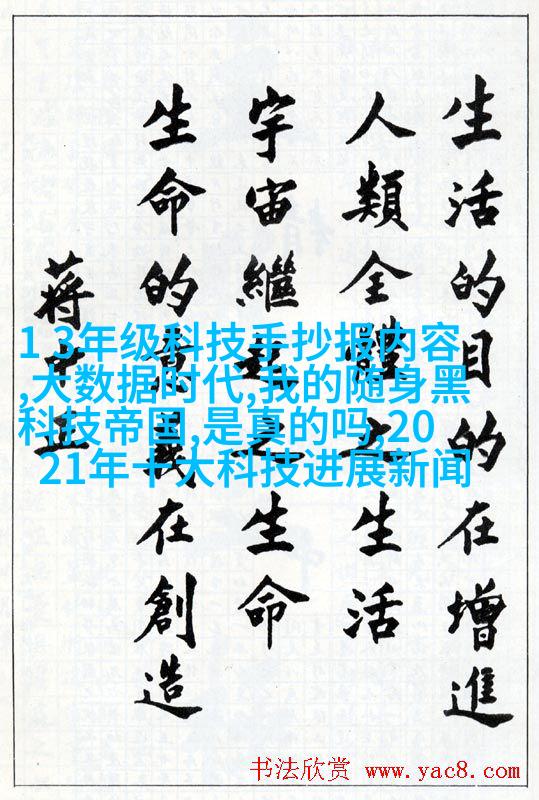 生活的目的在增進
人類全體之生活
宇宙繼起之生命
生命的意義在創造
蔣中正
1 3年级科技手抄报内容
,大数据时代,我的随身黑
科技帝国,是真的吗,20
21年十大科技进展新闻
书法欣赏 www.yac8.com